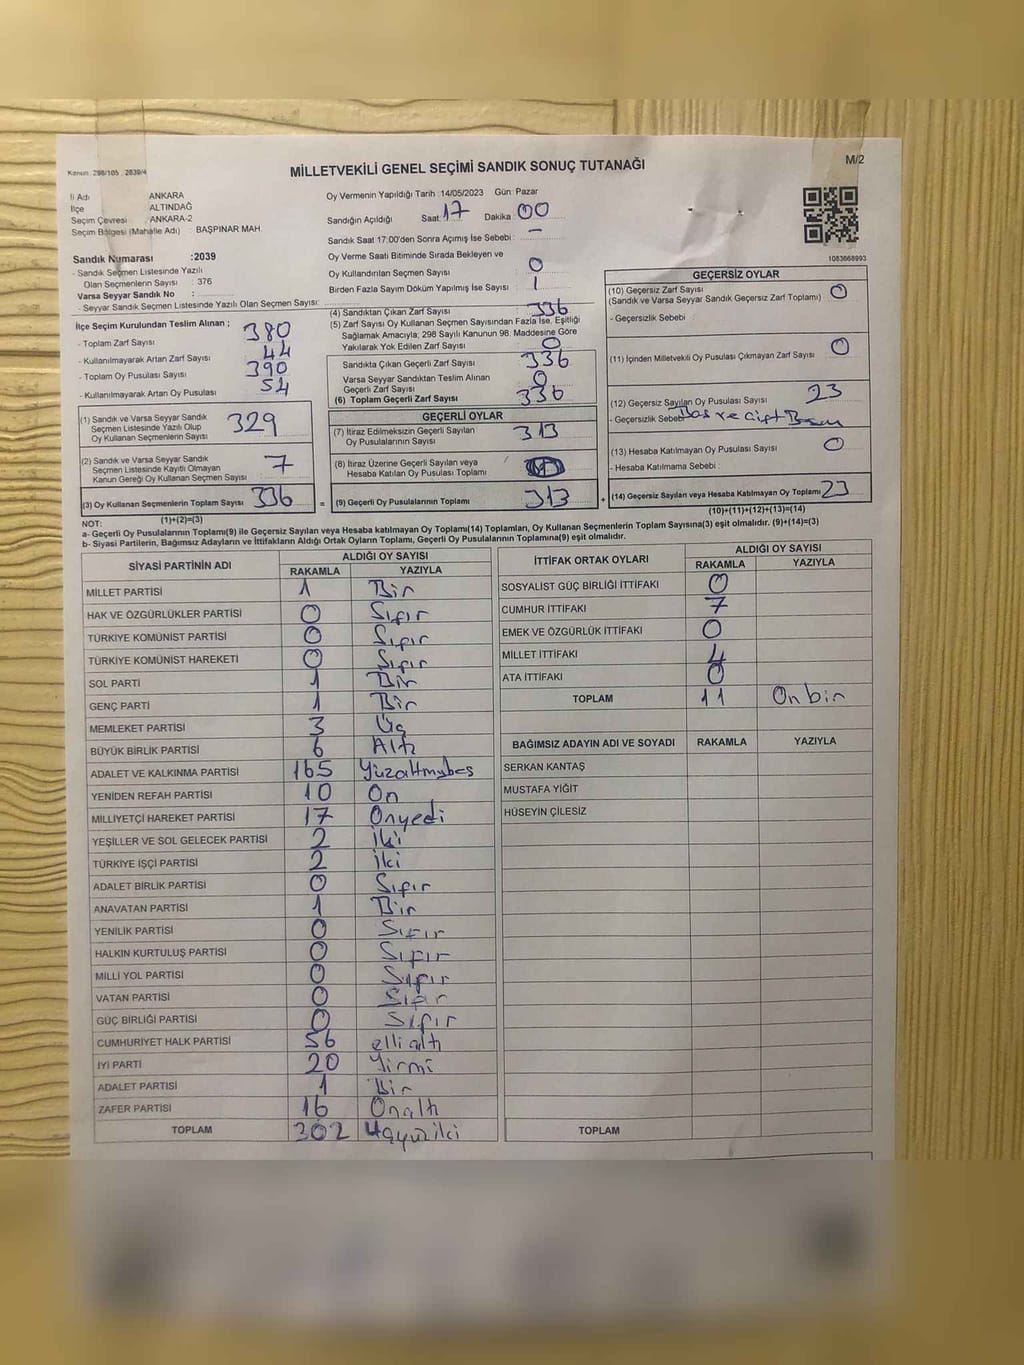 Kanun : 298/105 , 2839/4
MİLLETVEKİLİ GENEL SEÇİMİ SANDIK SONUÇ TUTANAĞI
M/2
İl Adı ANKARA
İlçe ALTINDAĞ
Seçim Çevresi ANKARA-2
Seçim Bölgesi (Mahalle Adı) : BAŞPINAR MAH.
Oy Vermenin Yapıldığı Tarih :14/05/2023 Gün: Pazar
Sandığın Açıldığı Saat: 17 Dakika: 00
Sandık Saat 17:00'den Sonra Açımış İse Sebebi : -
Oy Verme Saati Bitiminde Sırada Bekleyen ve
Oy Kullandırılan Seçmen Sayısı 0
Birden Fazla Sayım Döküm Yapılmış İse Sayısı 1
1083668993
Sandık Numarası :2039
- Sandık Seçmen Listesinde Yazılı
Olan Seçmenlerin Sayısı : 376
Varsa Seyyar Sandık No :
- Seyyar Sandık Seçmen Listesinde Yazılı Olan Seçmen Sayısı:
İlçe Seçim Kurulundan Teslim Alınan ;
- Toplam Zarf Sayısı 380
- Kullanılmayarak Artan Zarf Sayısı 44
- Toplam Oy Pusulası Sayısı 390
- Kullanılmayarak Artan Oy Pusulası 54
(1) Sandık ve Varsa Seyyar Sandık
Seçmen Listesinde Yazılı Olup
Oy Kullanan Seçmenlerin Sayısı 329
(2) Sandık ve Varsa Seyyar Sandık
Seçmen Listesinde Kayıtlı Olmayan
Kanun Gereği Oy Kullanan Seçmen Sayısı 7
(3) Oy Kullanan Seçmenlerin Toplam Sayısı 336
(1)+(2)=(3)
(4) Sandıktan Çıkan Zarf Sayısı 336
(5) Zarf Sayısı Oy Kullanan Seçmen Sayısından Fazla İse, Eşitliği
Sağlamak Amacıyla; 298 Sayılı Kanunun 98. Maddesine Göre
Yakılarak Yok Edilen Zarf Sayısı 0
Sandıkta Çıkan Geçerli Zarf Sayısı 336
Varsa Seyyar Sandıktan Teslim Alınan
Geçerli Zarf Sayısı 0
(6) Toplam Geçerli Zarf Sayısı 336
GEÇERLİ OYLAR
(7) İtiraz Edilmeksizin Geçerli Sayılan
Oy Pusulalarının Sayısı 313
(8) İtiraz Üzerine Geçerli Sayılan veya
Hesaba Katılan Oy Pusulası Toplamı
= (9) Geçerli Oy Pusulalarının Toplamı 313
GEÇERSİZ OYLAR
(10) Geçersiz Zarf Sayısı
(Sandık ve Varsa Seyyar Sandık Geçersiz Zarf Toplamı) 0
- Geçersizlik Sebebi :
(11) İçinden Milletvekili Oy Pusulası Çıkmayan Zarf Sayısı 0
(12) Geçersiz Sayılan Oy Pusulası Sayısı 23
- Geçersizlik Sebebi
(13) Hesaba Katılmayan Oy Pusulası Sayısı 0
- Hesaba Katılmama Sebebi :
+ (14) Geçersiz Sayılan veya Hesaba Katılmayan Oy Toplamı 23
(10)+(11)+(12)+(13)=(14)
NOT:
a- Geçerli Oy Pusulalarının Toplamı(9) ile Geçersiz Sayılan veya Hesaba katılmayan Oy Toplamı(14) Toplamları, Oy Kullanan Seçmenlerin Toplam Sayısına(3) eşit olmalıdır. (9)+(14)=(3)
b- Siyasi Partilerin, Bağımsız Adayların ve İttifakların Aldığı Ortak Oyların Toplamı, Geçerli Oy Pusulalarının Toplamına(9) eşit olmalıdır.
SİYASİ PARTİNİN ADI ALDIĞI OY SAYISI
RAKAMLA YAZIYLA
MİLLET PARTİSİ 1 Bir
HAK VE ÖZGÜRLÜKLER PARTİSİ 0 Sıfır
TÜRKİYE KOMÜNİST PARTİSİ 0 Sıfır
TÜRKİYE KOMÜNİST HAREKETİ 0 Sıfır
SOL PARTİ 1 Bir
GENÇ PARTİ 1 Bir
MEMLEKET PARTİSİ 3 Üç
BÜYÜK BİRLİK PARTİSİ 6 Altı
ADALET VE KALKINMA PARTİSİ 165 Yüzaltmışbeş
YENİDEN REFAH PARTİSİ 10 On
MİLLİYETÇİ HAREKET PARTİSİ 17 Onyedi
YEŞİLLER VE SOL GELECEK PARTİSİ 2 İki
TÜRKİYE İŞÇİ PARTİSİ 2 İki
ADALET BİRLİK PARTİSİ 0 Sıfır
ANAVATAN PARTİSİ 1 Bir
YENİLİK PARTİSİ 0 Sıfır
HALKIN KURTULUŞ PARTİSİ 0 Sıfır
MİLLİ YOL PARTİSİ 0 Sıfır
VATAN PARTİSİ 0 Sıfır
GÜÇ BİRLİĞİ PARTİSİ 0 Sıfır
CUMHURİYET HALK PARTİSİ 56 elli altı
İYİ PARTİ 20 Yirmi
ADALET PARTİSİ 1 Bir
ZAFER PARTİSİ 16 Onaltı
TOPLAM 302 Üçyüziki
İTTİFAK ORTAK OYLARI ALDIĞI OY SAYISI
RAKAMLA YAZIYLA
SOSYALİST GÜÇ BİRLİĞİ İTTİFAKI 0
CUMHUR İTTİFAKI 7
EMEK VE ÖZGÜRLÜK İTTİFAKI 0
MİLLET İTTİFAKI 4
ATA İTTİFAKI 0
TOPLAM 11 Onbir
BAĞIMSIZ ADAYIN ADI VE SOYADI RAKAMLA YAZIYLA
SERKAN KANTAŞ
MUSTAFA YİĞİT
HÜSEYİN ÇİLESİZ
TOPLAM